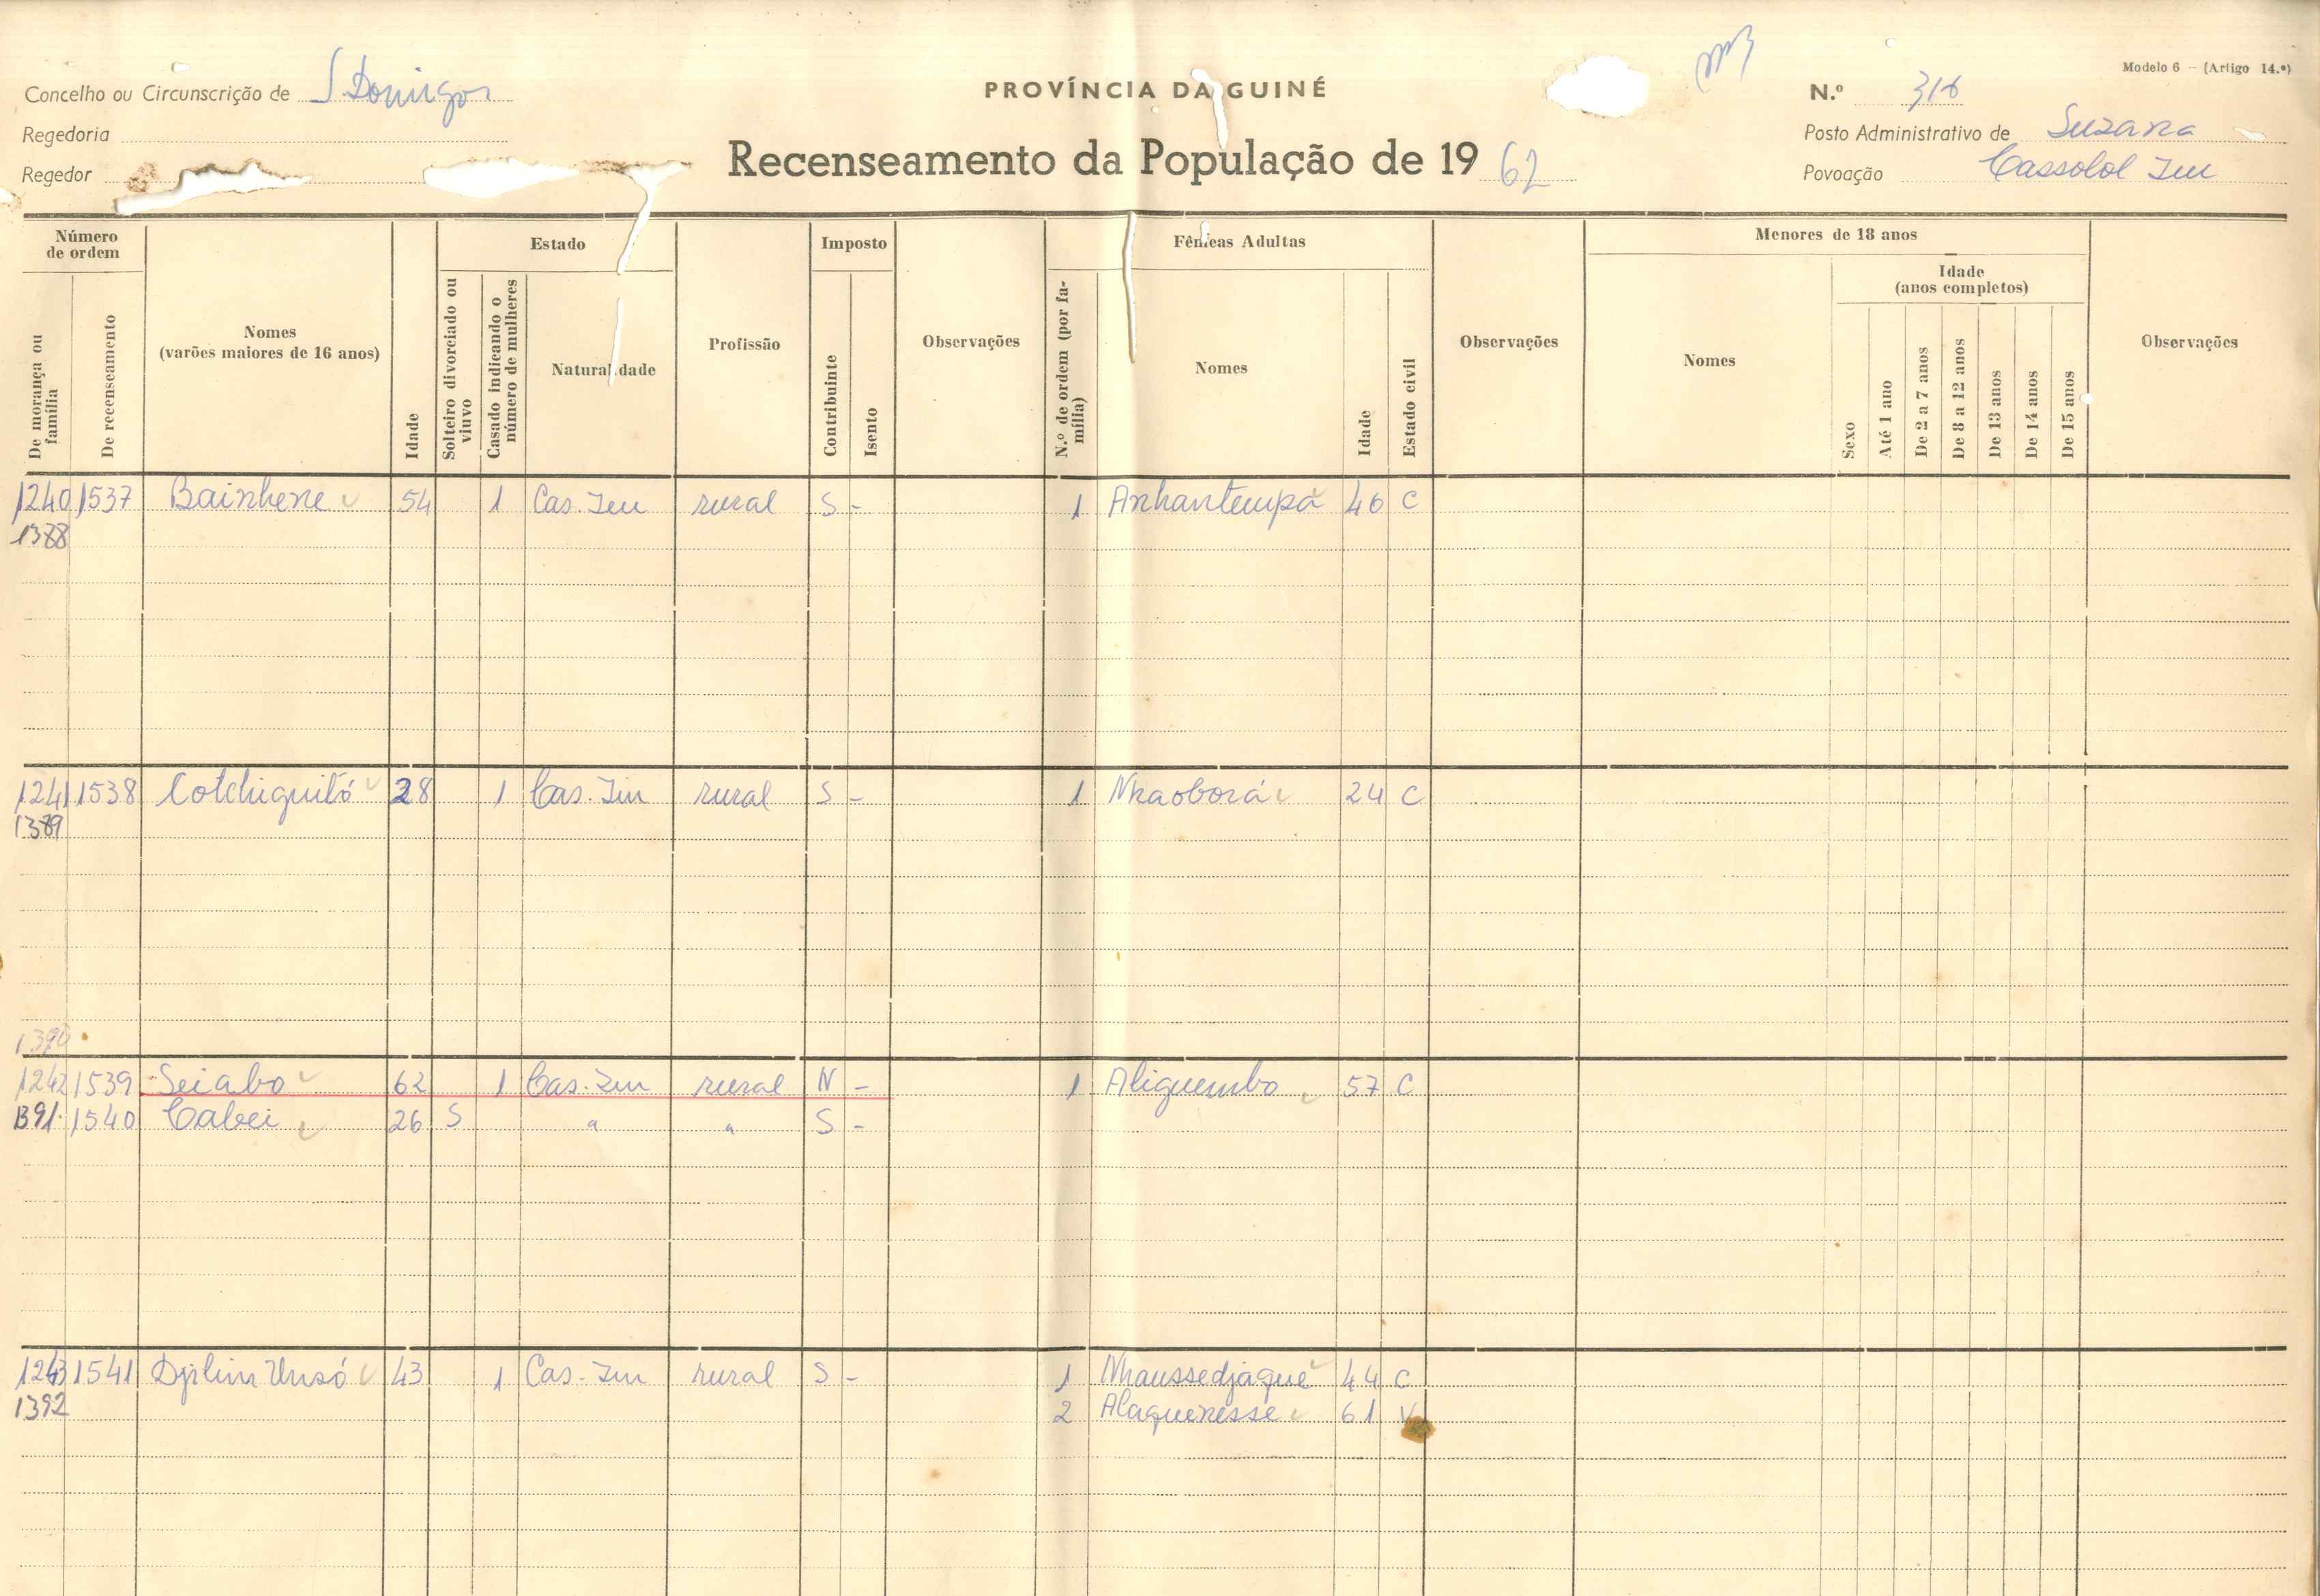 Modelo 6 — (Artigo 14.º)
Concelho ou Circunscrição de S. Domingos
PROVÍNCIA DA GUINÉ
N.º 316
Regedoria
Posto Administrativo de Suzana
Regedor
Recenseamento da População de 1962
Povoação Cassolol Jin
Número de ordem
Estado
Imposto
Fêmeas Adultas
Menores de 18 anos
Idade (anos completos)
De morança ou família
De recenseamento
Nomes (varões maiores de 16 anos)
Idade
Solteiro divorciado ou viuvo
Casado indicando o número de mulheres
Naturalidade
Profissão
Contribuinte
Isento
Observações
N.º de ordem (por família)
Nomes
Idade
Estado civil
Observações
Nomes
Sexo
Até 1 ano
De 2 a 7 anos
De 8 a 12 anos
De 13 anos
De 14 anos
De 15 anos
Observações
1240 1537 Bainhene 54 1 Cas. Jin rural S - 1 Anhantempá 46 C
1388
1241 1538 Cotchiquiló 28 1 Cas. Jin rural S - 1 Nhaoborá 24 C
1389
1390
1242 1539 Seiabo 62 1 Cas. Jin rural N - 1 Aliguembo 57 C
1391 1540 Cabei 26 S " " S -
1243 1541 Djilin Unsó 43 1 Cas. Jin rural S - 1 Nhaussedjaque 44 C
1392 2 Alaguenesse 61 V